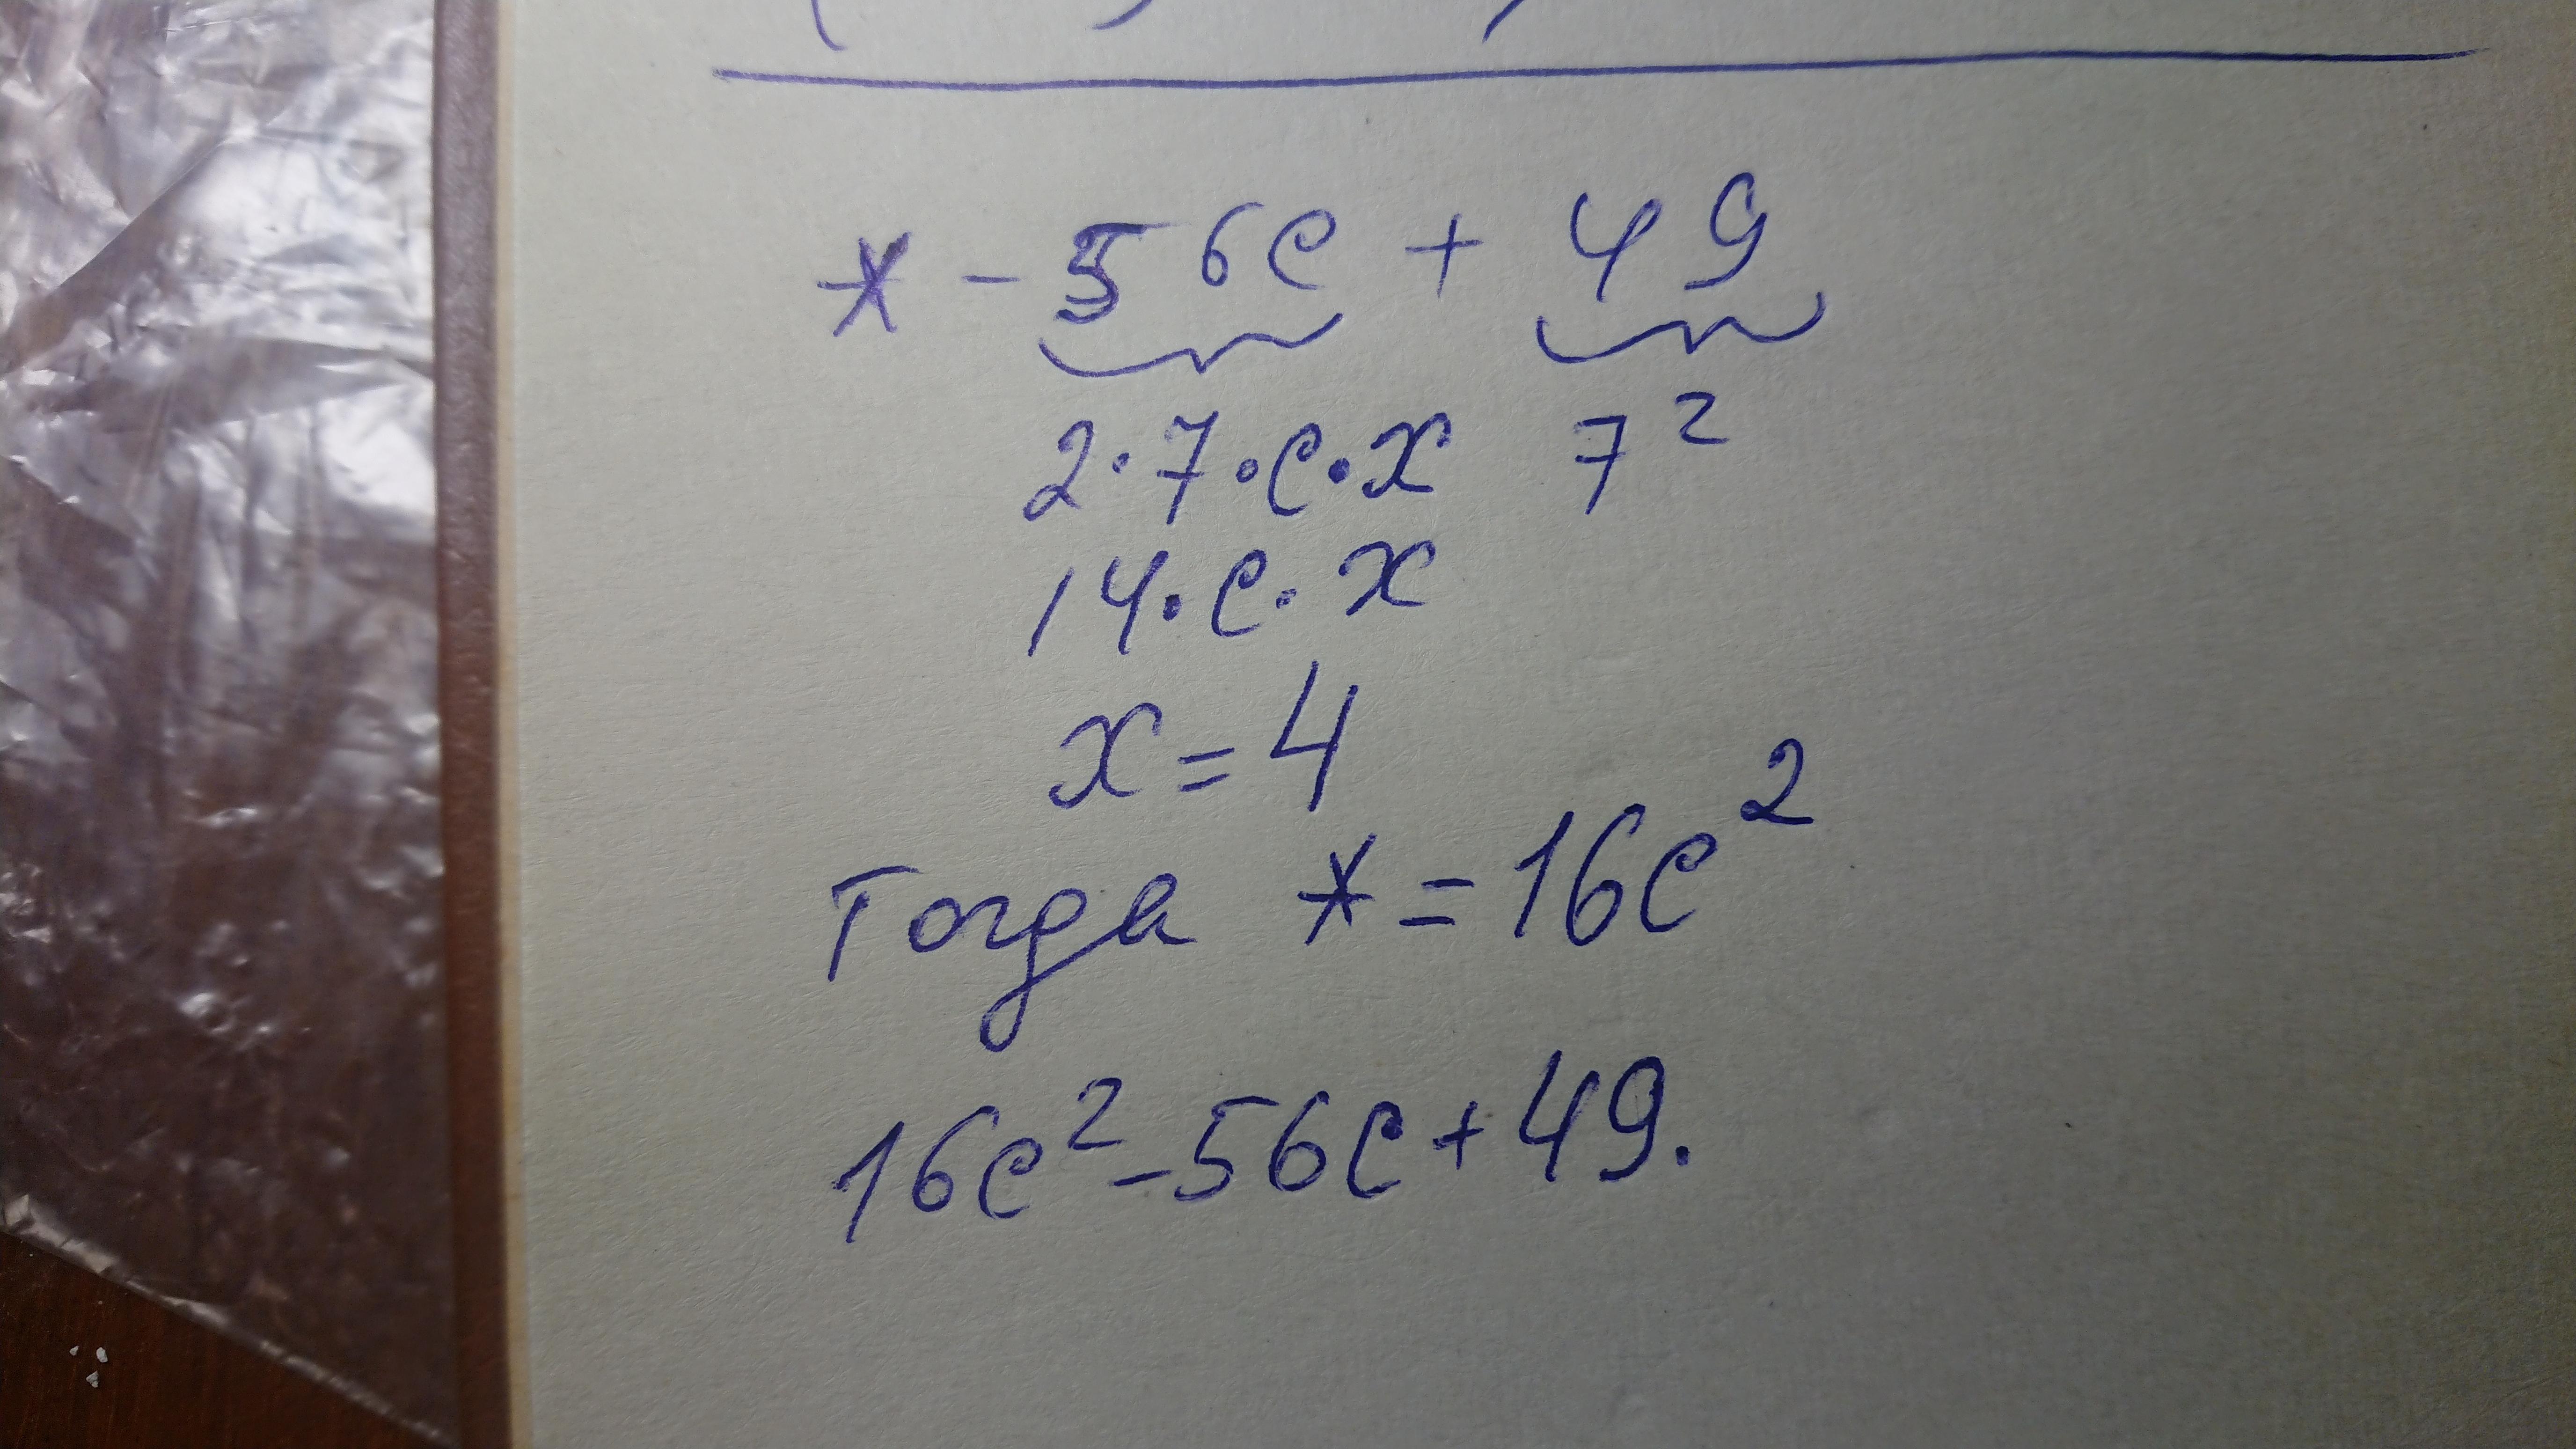 * - 56c + 49
2·7·c·x 7²
14·c·x
x = 4
Тогда * = 16c²
16c² - 56c + 49.